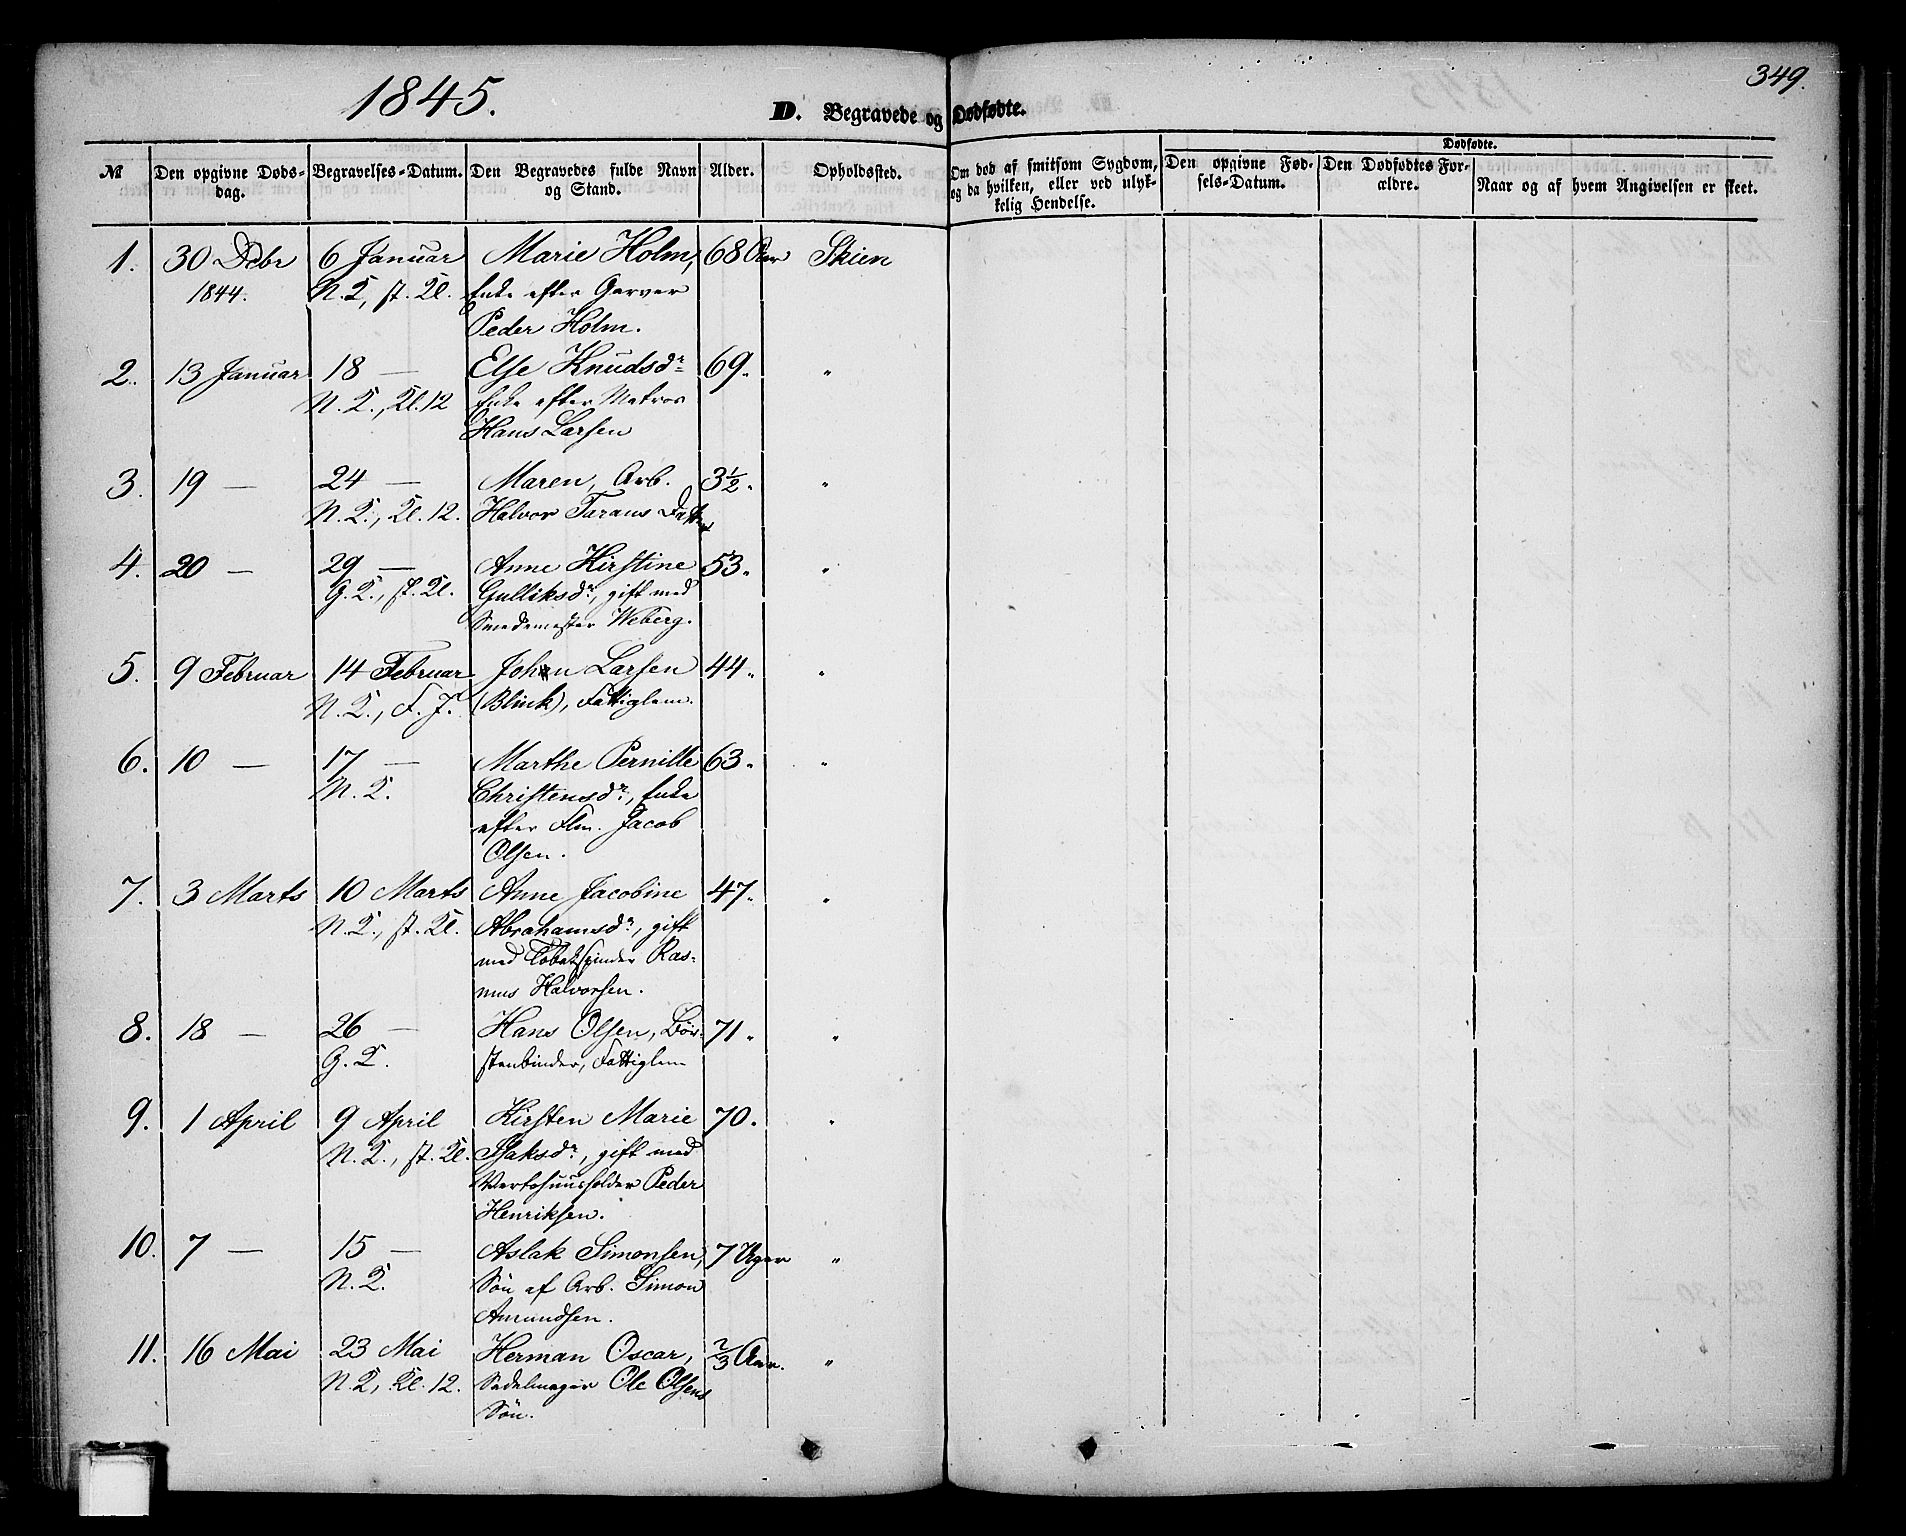 1845.
349.
D. Begravede og Dødfødte.
Dødfødte.
№ Den opgivne Døds-dag. Begravelses-Datum. Den Begravedes fulde Navn og Stand. Alder. Opholdssted. Om død af smitsom Sygdom, og da hvilken, eller ved ulyk-kelig Hendelse. Den opgivne Fød-sels-Datum. Den Dødfødtes For-ældre. Naar og af hvem Angivelsen er skeet.
1. 30 Dcbr 6 Januar Marie Holm, 68 Aar Skien
1844. N. T, st. Kl. Enke efter Garver
Peder Holm.
2. 13 Januar 18 — Else Knudsdr 69. "
N. T., Kl. 12 Enke efter Matros
Hans Larsen
3. 19 — 24 — Maren, Arb. 3½. "
N. T., Kl. 12. Halvor Tarans Datter
4. 20 — 29 — Anne Kirstine 53. "
G. T., st. Kl. Gulliksdr, gift med
Smedemester Weberg.
5. 9 Februar 14 Februar Johan Larsen 44. "
N. T., F. J. (Blink), Fattiglem.
6. 10 — 17 — Marthe Pernille 63. "
N. T. Christensdr, Enke
efter Flm. Jacob
Olsen.
7. 3 Marts 10 Marts Anne Jacobine 47. "
N. T., st. Kl. Abrahamsdr, gift
med Tobakspinder Ras-
mus Halvorsen.
8. 18 — 26 — Hans Olsen, Bør- 71. "
G. T. stenbinder, Fattiglem
9. 1 April 9 April Kirsten Marie 70. "
N. T., st. Kl. Isaksdr, gift med
Vertshuusholder Peder
Henriksen.
10. 7 — 15 — Aslak Simonsen, 7 Uger "
N. T. Søn af Arb. Simon
Amundsen.
11. 16 Mai 23 Mai Herman Oscar, 2/3 Aar. "
N. T, Kl. 12. Sadelmager Ole Olsens
Søn.